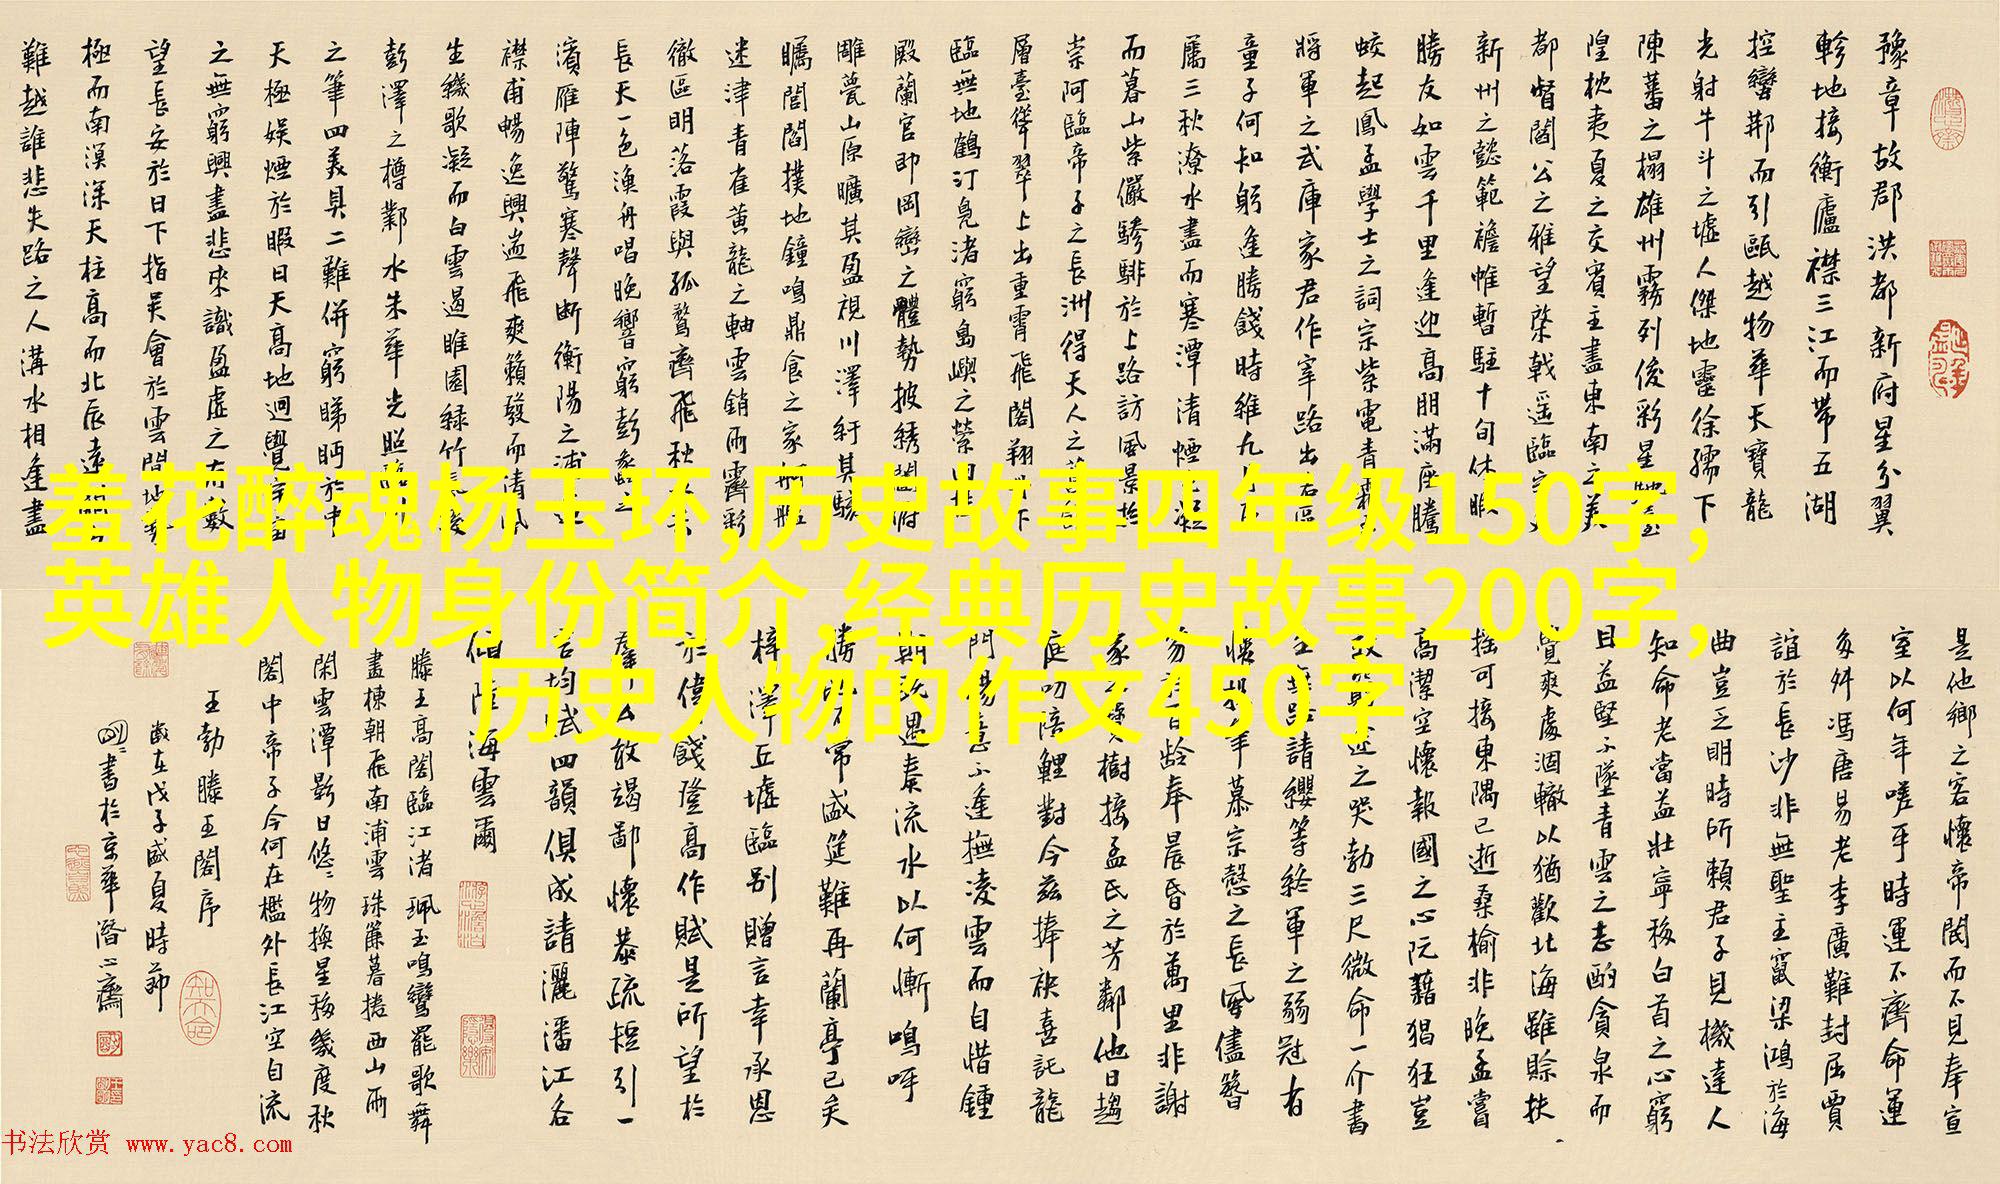 豫章故郡洪都新府星分翼
軫地接衡廬襟三江而帶五湖
控蠻荊而引甌越物華天寶龍
光射牛斗之墟人傑地靈徐孺下
陳蕃之榻雄州霧列俊彩星馳臺
隍枕夷夏之交賓主盡東南之美
都督閻公之雅望棨戟遥臨宇
新州之懿範襜帷暫駐十旬休暇
勝友如雲千里逢迎高朋滿座騰
蛟起鳳孟學士之詞宗紫電青霜
將軍之武庫家君作宰路出名區
童子何知躬逢勝餞時維九月
屬三秋潦水盡而寒潭清煙凝
而暮山紫儼驂騑於上路訪風景於
崇阿臨帝子之長洲得天人之
層臺聳翠上出重霄飛閣翔下
臨無地鶴汀鳧渚窮島嶼之縈
殿蘭宮即岡巒之體勢披綉闥俯
雕甍山原曠其盈視川澤紆其駭
矚閭閻撲地鐘鳴鼎食之家舸艦
迷津青雀黄龍之軸雲銷雨霽彩
徹區明落霞與孤鶩齊飛秋
長天一色漁舟唱晚響窮彭蠡之
濱雁陣驚寒聲斷衡陽之浦
襟甫暢逸興遄飛爽籟發而清風
生纖歌凝而白雲遏睢園緑竹
彭澤之樽鄴水朱華光照臨
之筆四美具二難併窮睇眄於中
天極娛煙於暇日天高地迥覺宇宙
之無窮興盡悲來識盈虛之有數
望長安於日下指吳會於雲間地勢
極而南溟深天柱高而北辰遠關
難越誰悲失路之人溝水相逢盡
羞花醉魂杨玉环,历史故事四年级150字,
英雄人物身份简介,经典历史故事200字,
历史人物的作文450字
是他鄉之客懷帝閽而不見奉宣
室以何年嗟乎時運不齊命運
多舛馮唐易老李廣難封屈賈
誼於長沙非無聖主竄梁鴻於海
曲豈乏明時所賴君子見機達人
知命老當益壯寧移白首之心窮
且益堅不墜青雲之志酌貪泉而
覺爽處涸轍以猶歡北海雖賒扶
摇可接東隅已逝桑榆非晚孟嘗
高潔空懷報國之心阮藉猖狂豈
之哭勃三尺微命一介書
無路請纓等終軍之弱冠有
懷筆慕宗慤之長風儘簪
笏百齡奉晨昏於萬里非謝
家樹接孟氏之芳鄰他日趨
庭叨陪鯉對今茲捧袂喜託龍
門楊意不逢撫凌雲而自惜鍾
期既遇奏流水以何慚鳴呼
勝常盛筵難再蘭亭已矣
梓澤丘墟臨别贈言幸承恩
於偉餞登高作賦是所望於
群公敢竭鄙懷恭疏短引一
言均賦四韻俱成請灑潘江各
傾陸海雲爾
滕王高閣臨江渚珮玉鳴鸞罷歌舞
畫棟朝飛南浦雲珠簾暮捲西山雨
閑雲潭影日悠悠物換星移幾度秋
閣中帝子今何在檻外長江空自流
王勃滕王閣序
歲在戊子盛夏時節
書於京華潛心齋
书法欣赏 www.yac8.com